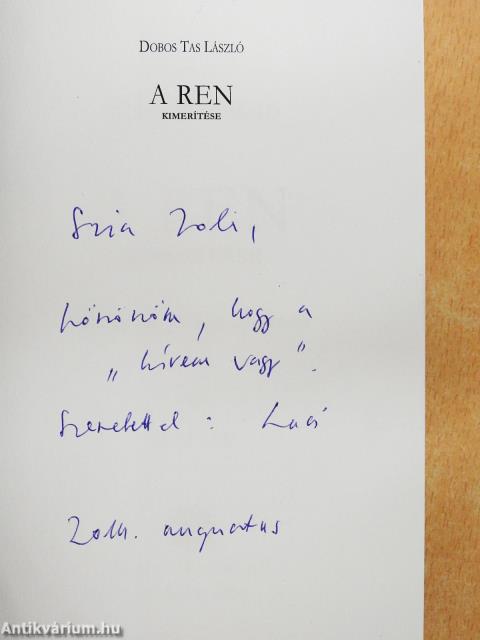 DOBOS TAS LÁSZLÓ
A REN
KIMERÍTÉSE
Szia Zoli,
köszönöm, hogy a
„hívem vagy”.
Szeretettel: Laci
augusztus
Antikvárium.hu